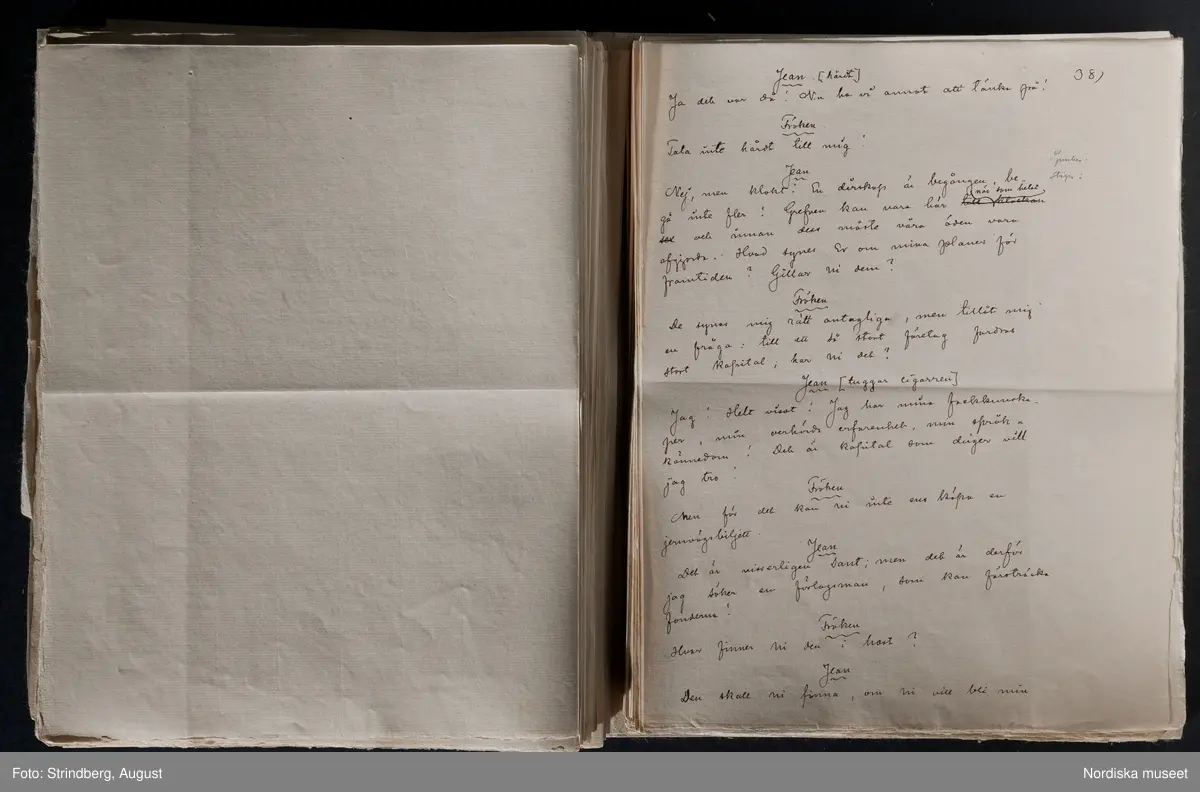 38)
Jean. [hårdt]
Ja det var då! Nu ha vi annat att tänka på!
Fröken
Tala inte hårdt till mig!
Jean
Nej, men klokt! En dårskap är begången, be-
gå inte fler! Grefven kan vara här när som helst
och innan dess måste våra öden vara
afgjorda. Hvad synes Er om mina planer för
framtiden? Gillar ni dem?
Fröken
De synas mig rätt antagliga, men tillåt mig
en fråga: till ett så stort företag fordras
stort kapital; har ni det?
Jean [tuggar cigarren]
Jag! Helt visst! Jag har mina fackkunska-
per, min oerhörda erfarenhet, min språk-
kännedom! Det är kapital som duger vill
jag tro!
Fröken
Men för det kan ni inte ens köpa en
jernvägsbiljett.
Jean
Det är visserligen sant; men det är derför
jag söker en förlagsman, som kan försträcka
fonderna!
Fröken
Hvar finner ni den i hast?
Jean
Den skall ni finna, om ni vill bli min
Foto: Strindberg, August
Nordiska museet